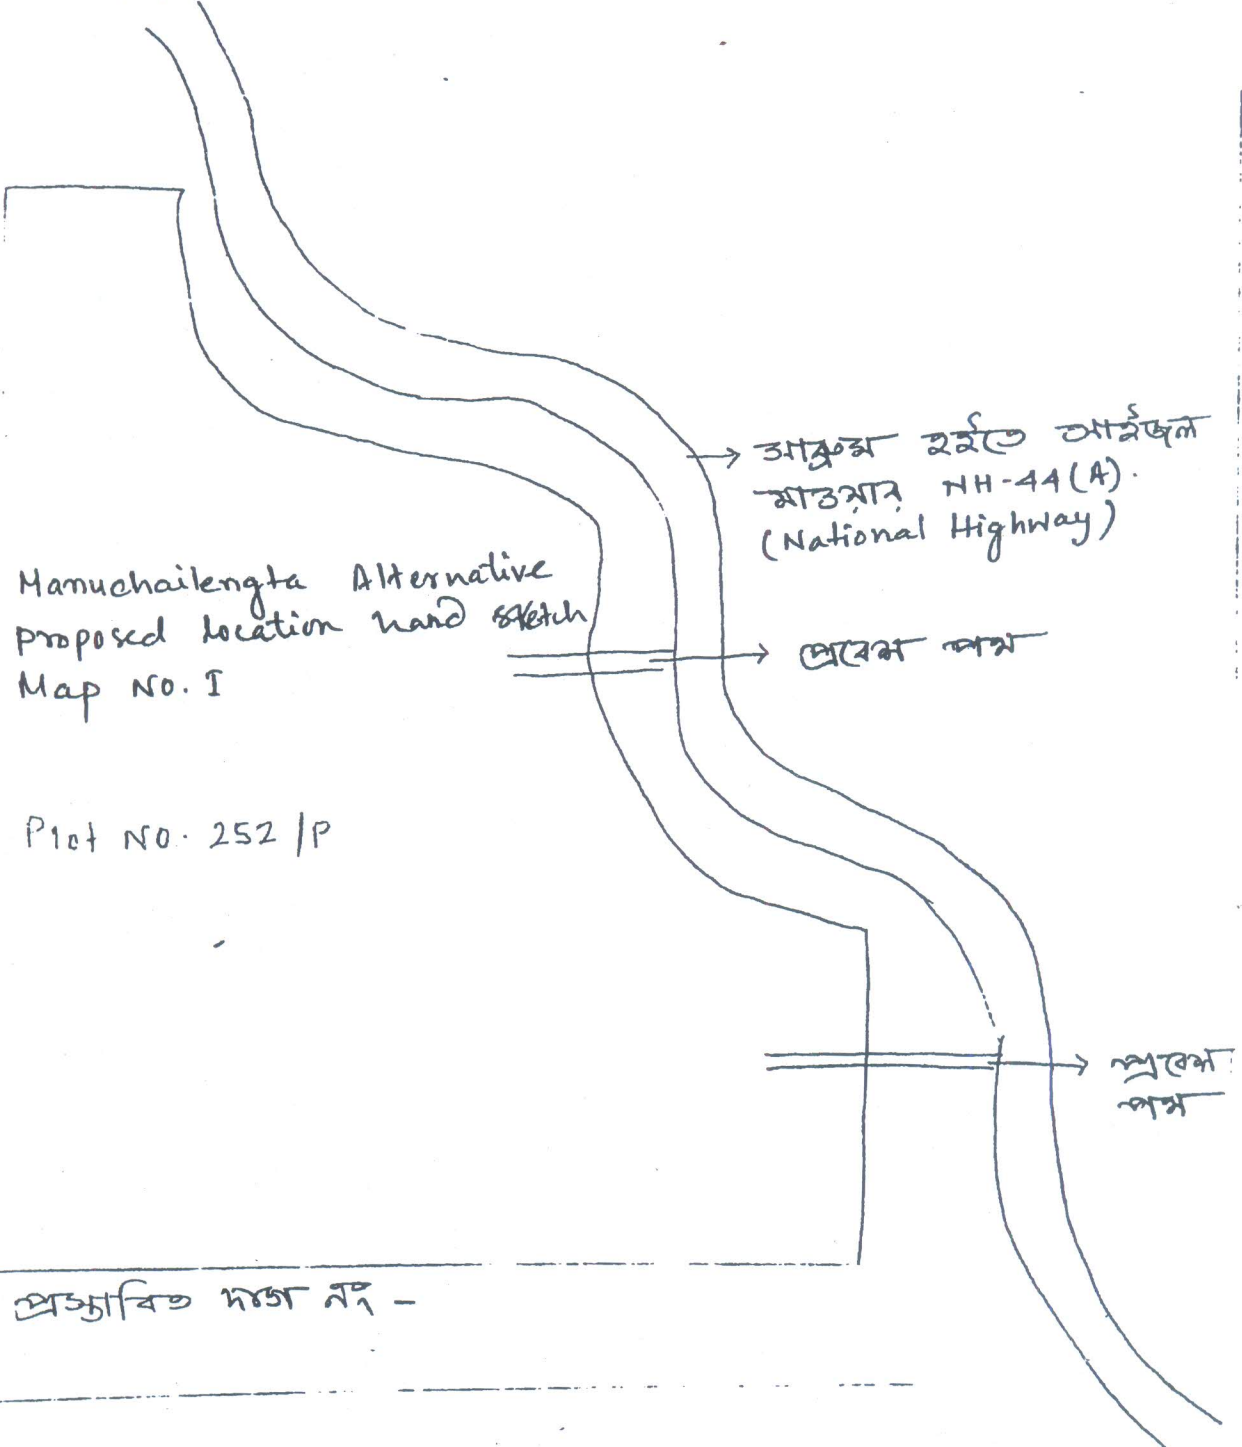 হইতে আইজল
যাওয়ার NH-44(A).
(National Highway)
Manuchailengta Alternative
proposed location hand sketch
Map No. I
প্রবেশ পথ
Plot No. 252/P
প্রবেশ
পথ
প্রস্তাবিত দাগ নং -